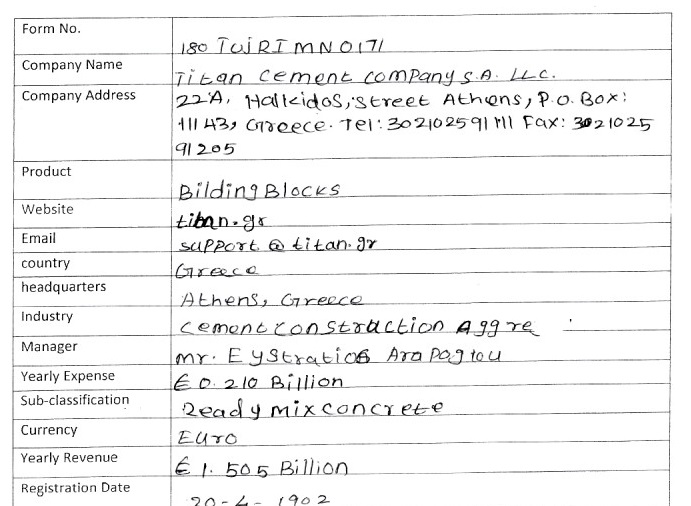 Form No.
180 TWJRIMNO171
Company Name
Titan Cement Company S.A. LLC.
Company Address
22A, Halkidos, Street Athens, P.O. Box:
11143, Greece. Tel: 302102591111 Fax: 3021025
91205
Product
Bilding Blocks
Website
titan.gr
Email
support@titan.gr
country
Greece
headquarters
Athens, Greece
Industry
Cement Construction Aggre
Manager
Mr. Eystratios Arapoglou
Yearly Expense
€ 0.210 Billion
Sub-classification
Ready mix concrete
Currency
Euro
Yearly Revenue
€ 1.505 Billion
Registration Date
20-4-1902